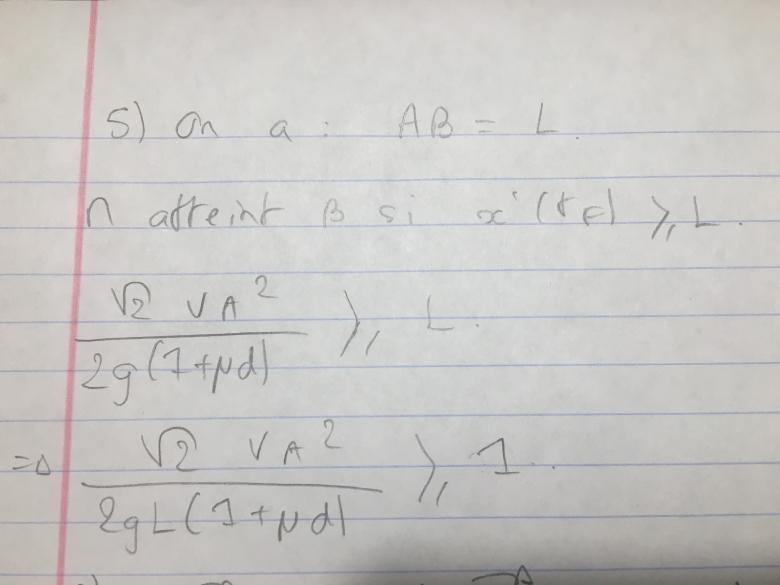 5) On a : AB = L.
M atteint B si x'(t_F) ⩾ L.
√2 v_A² / 2g(1+μd) ⩾ L.
=> √2 v_A² / 2gL(1+μd) ⩾ 1.